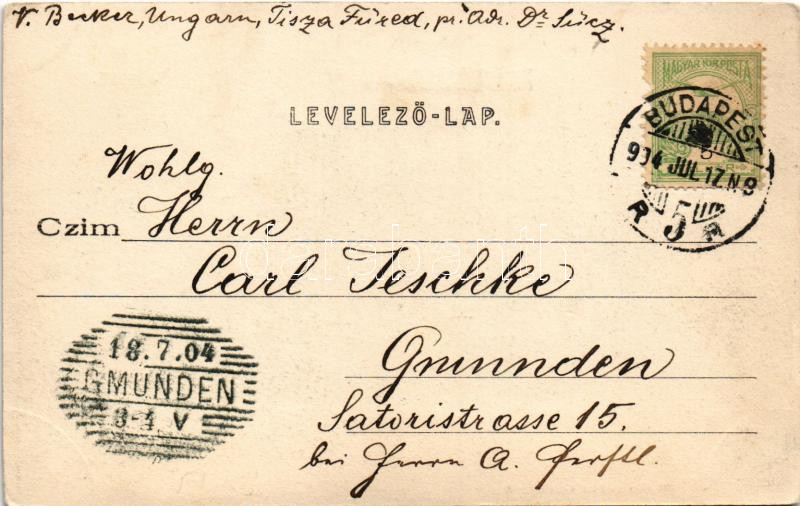 V. Becker, Ungarn, Tisza Füred, pr. Adr. Dr. Sücz.
MAGYAR KIR. POSTA
LEVELEZŐ-LAP.
BUDAPEST
904 JUL 17 N 8
5
Wohlg.
Czim Herrn
Carl Jeschke
darabanth
18.7.04
GMUNDEN
V
Gmunden
Satoristrasse 15.
bei Herrn A. Ferstl.